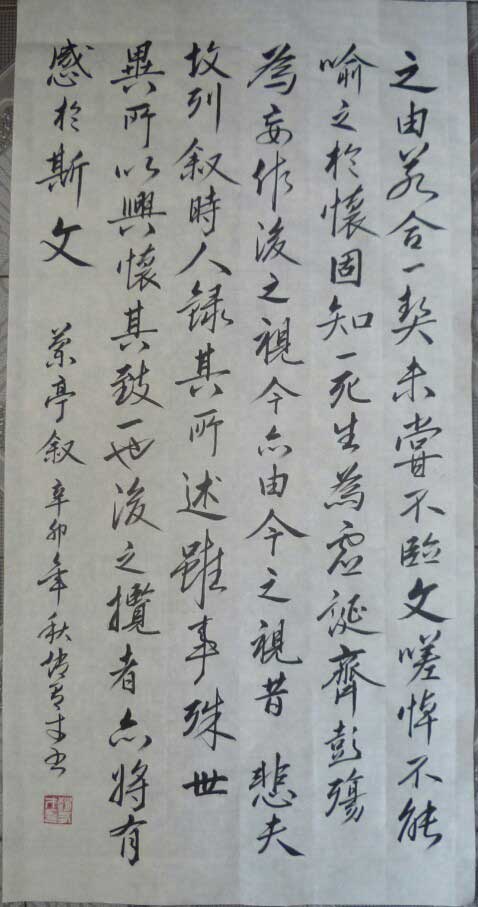 之由若合一契未嘗不臨文嗟悼不能
喻之於懷固知一死生為虛誕齊彭殤
為妄作後之視今亦由今之視昔 悲夫
故列叙時人錄其所述雖事殊世
異所以興懷其致一也後之攬者亦將有
感於斯文 蘭亭叙 辛卯年秋